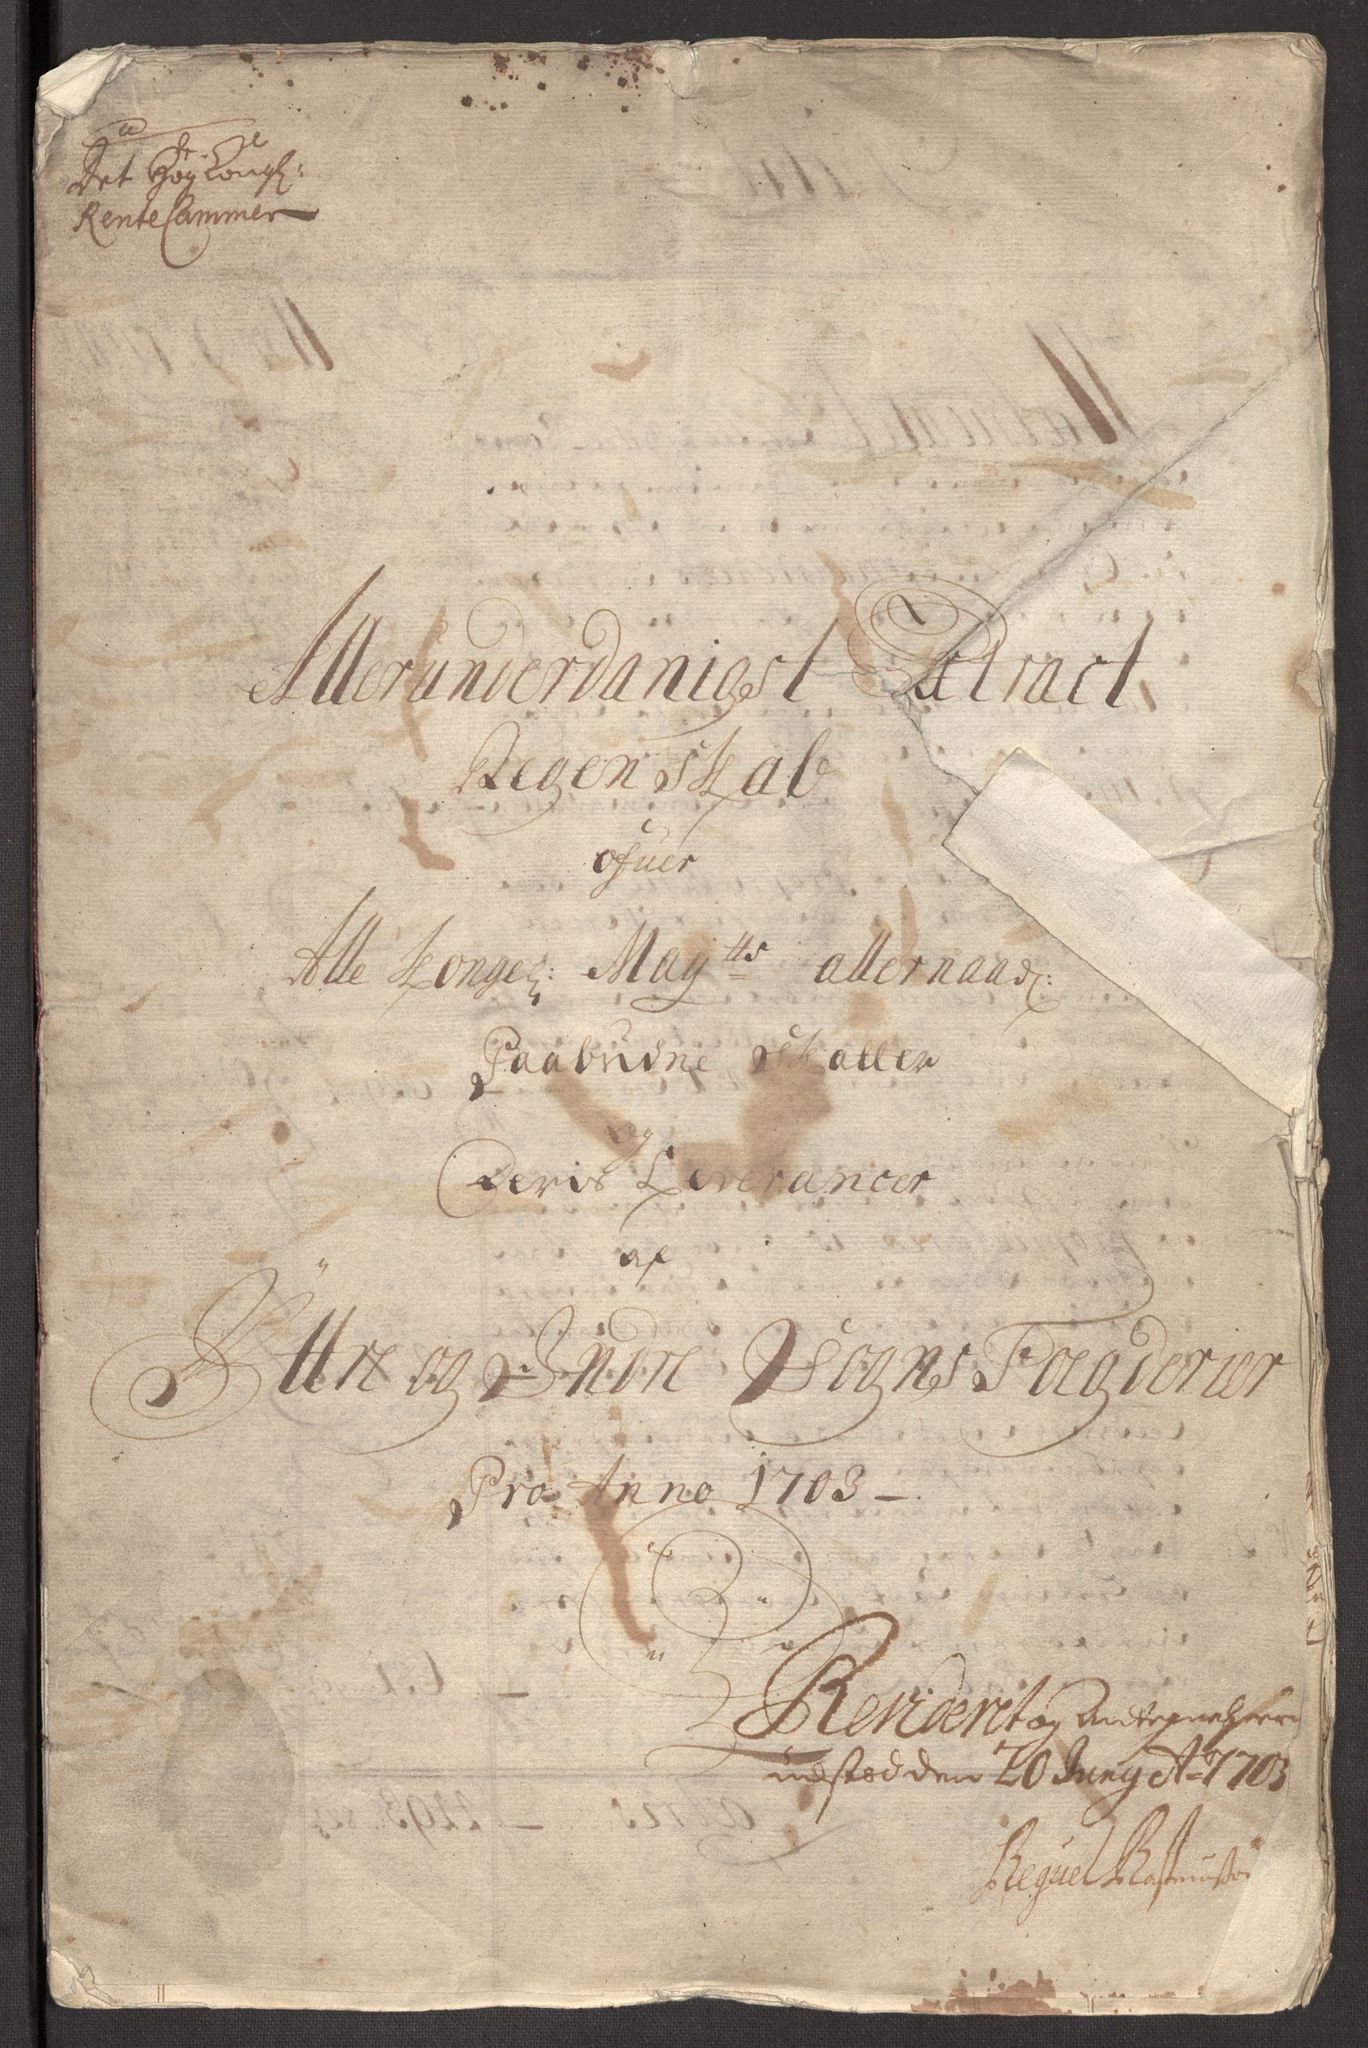 Det Høy Kongl:
Rente Cammer
Allerunderdanigst Extract
Regenskab
ofuer
Alle Kongel: Mayttz allernaad:
Paabudne Skatter
og
Deris Leverancer
af
Ÿttre og Indre Sogns Fogderier
Pro Anno 1703
Revideret og
udsted den 20 Juny Ao 1703
Reguel Rasmuss